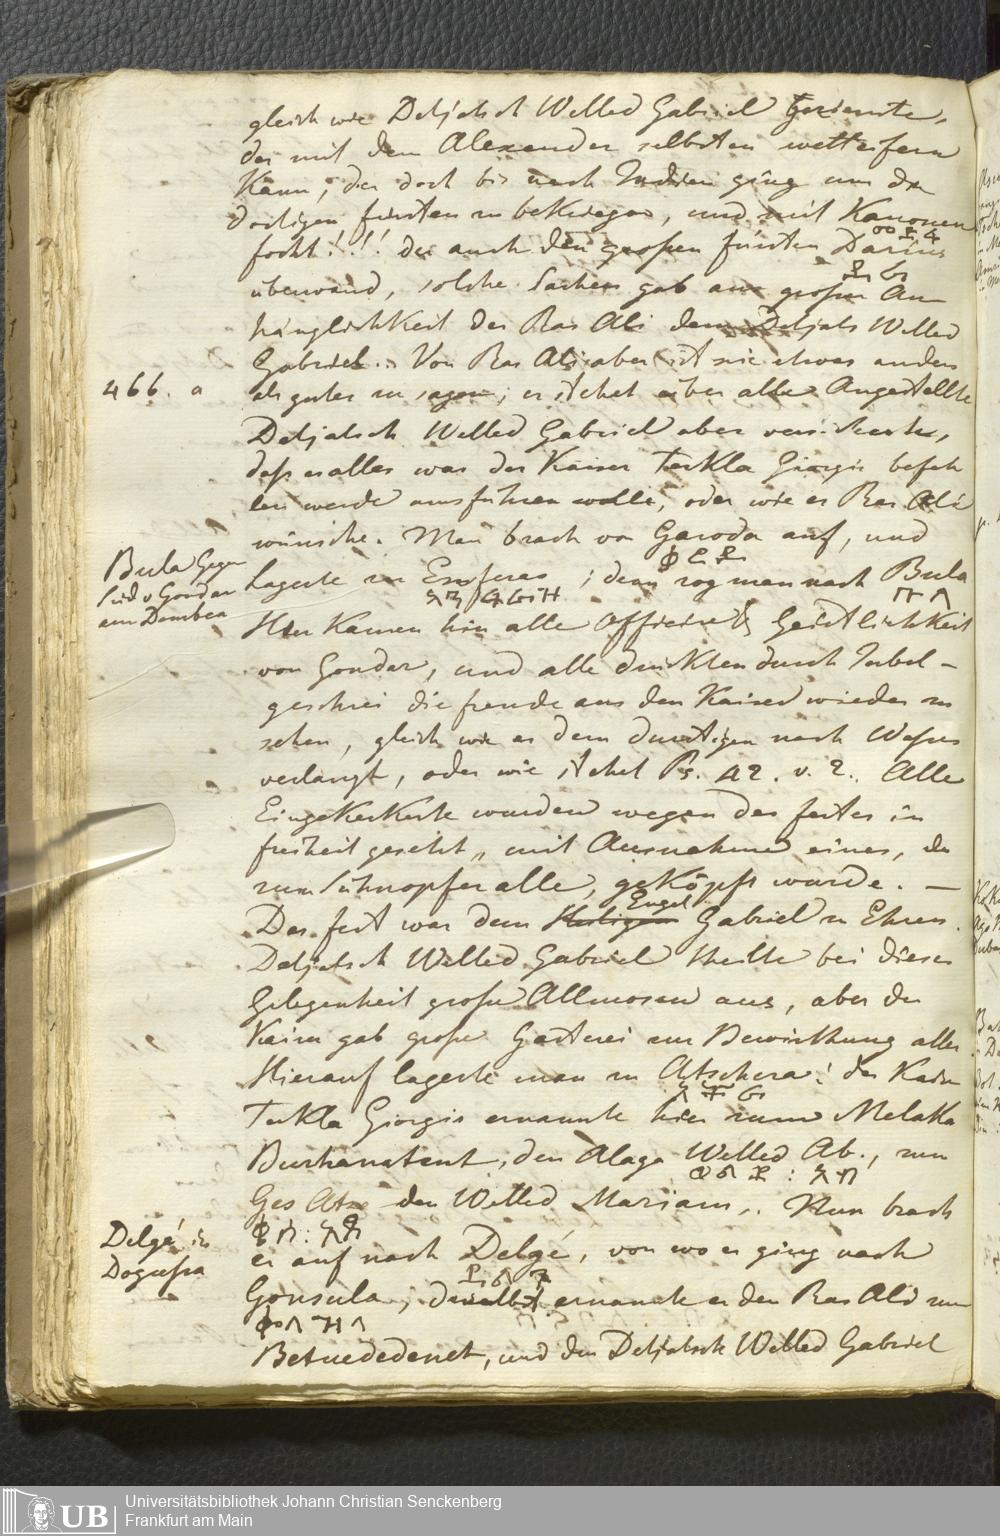 gleich wie Detjatsch Welled Gabriel geziemte,
der mit dem Alexander selbsten wetteifern
Kann, der doch bis nach Indien ging um die
dortigen fürsten zu beKriegen, und mit Kanonen
focht!!! der auch den großen fürsten Darius
überwand, solche Sachen gab aus großer An-
hänglichKeit der Ras Ali dem Detjats Welled
Gabriel. Von Ras Ali aber ist nie etwas anders
466. a als gutes zu sagen; er stehet über alle Angestellte
Detjatsch Welled Gabriel aber versicherte,
daß er alles was der Kaiser Tekla Giorgis befeh
len werde ausführen wolle, oder wie es Ras Ali
wünsche. Man brach von Garoda auf, und
Bula Gegen
Süd v Gondar
am Dembea
lagerte zu Enferas; dann zog man nach Bula
Hier Kamen hin alle Officire & GeistlichKeit
von Gondar, und alle drükten durch Jubel-
geschrei die freude aus den Kaiser wieder zu
sehen, gleich wie es dem durstigen nach Wasser
verlangt, oder wie stehet Ps. 42. v. 2. Alle
EingeKerKerte wurden wegen des festes in
freiheit gesetzt, mit Ausnahme eines, der
zum Sühnopfer aller, geKöpft wurde. —
Engel
Das fest war dem Heiligen Gabriel zu Ehren.
Detjatsch Welled Gabriel theilte bei dieser
Gelegenheit große Allmosen aus, aber der
Kaiser gab große Gasterei zur Bewirthung aller
Hierauf lagerte man zu Atschera; der Kaiser
Tekla Giorgis ernannte hier zum MelaKa
Burhanatent, den Alaga Welled Ab., zum
Ges Atse den Welled Mariam. Nun brach
Delgé in
Dogussa
er auf nach Delgé, von wo er ging nach
Gonsula, daselbst ernannte er den Ras Ali zum
Betuededenet, und den Detjatsch Welled Gabriel
UB
Universitätsbibliothek Johann Christian Senckenberg
Frankfurt am Main